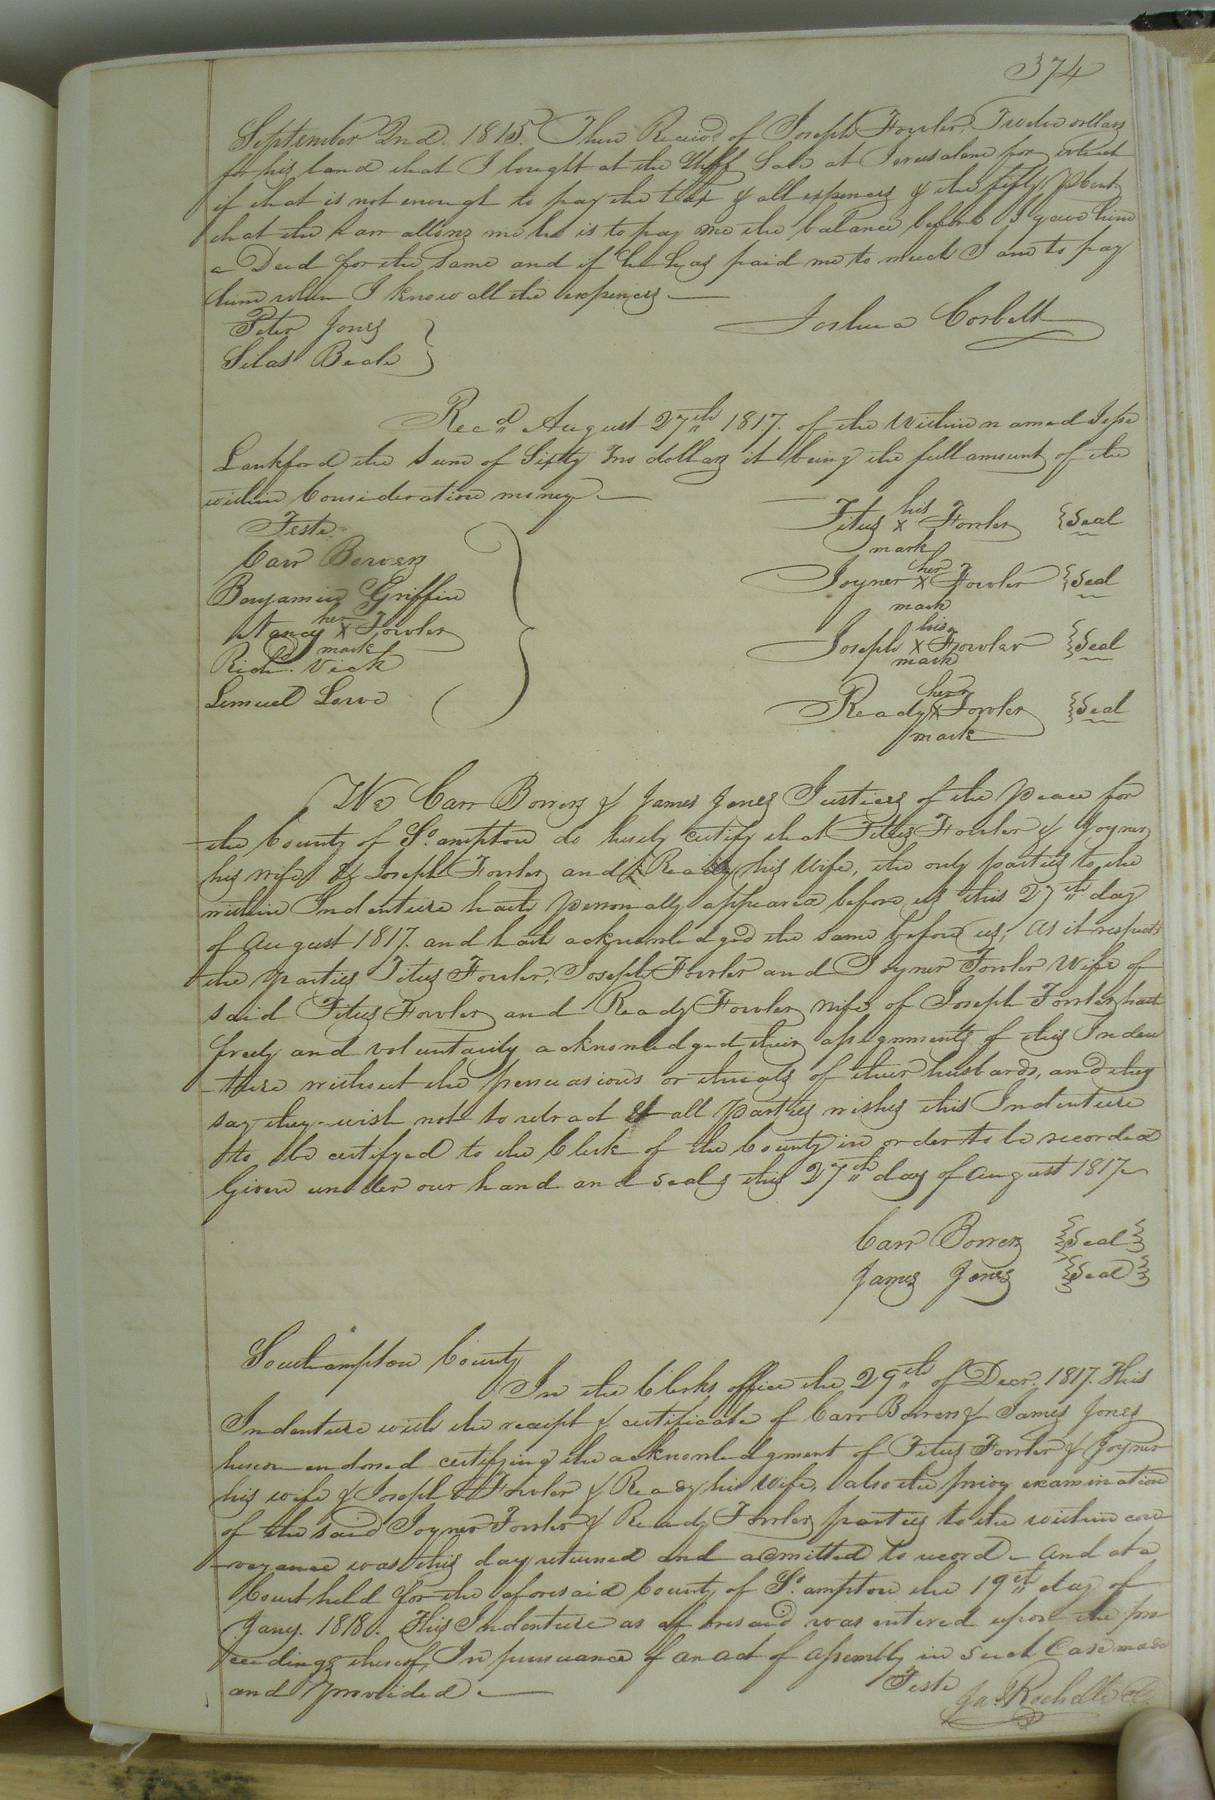 374
September 2nd. 1815. Then Receivd of Joseph Fowler. Twelve dollars
for his land that I bought at the Shff Sale at Jerusalem for which
if that is not enough to pay the tax & all expences & the fifty pCent
that the Law allows me he is to pay me the balance before I gave him
a Deed for the same and if he has paid me to much I am to pay
him when I know all the expences
Peter Jones
Joshua Corbett
Silas Beale
Recd. August 27th 1817. of the within named Jesse
Lankford the sum of Sixty Two dollars it being the full amount of the
within Consideration money
Teste
Carr Bowers
Benjamin Griffin
Nancy her X mark Fowler
Richd. Vick
Lemuel Lowe
Titus his X mark Fowler {Seal
Joyner her X mark Fowler {Seal
Joseph his X mark Fowler {Seal
Ready her X mark Fowler {Seal
We Carr Bowers & James Jones Justices of the Peace for
the County of So.ampton do hereby certify that Titus Fowler & Joyner
his wife & Joseph Fowler and Ready his Wife, the only parties to the
within Indenture hath personally appeared before us this 27th day
of August 1817. and hath acknowledged the same before us, As it respects
the parties Titus Fowler, Joseph Fowler and Joyner Fowler Wife of
said Titus Fowler and Ready Fowler wife of Joseph Fowler hath
freely and voluntarily acknowledged their assignments of this Inden
-ture without the persuasions or threats of their husbands, and they
say they wish not to retract & all Parties wishes this Indenture
to be certifyed to the Clerk of the County in order to be recorded
Given under our hand and seals this 27th day of August 1817
Carr Bowers {Seal}
James Jones {Seal}
Southampton County
In the Clerks office the 29th of Decr. 1817. This
Indenture with the receipt & certificate of Carr Bowers & James Jones
hereon endorsed certifying the acknowledgment of Titus Fowler & Joyner
his wife & Joseph Fowler & Ready his Wife, also the privy examination
of the said Joyner Fowler & Ready Fowler parties to the within con
-veyance was this day returned and admitted to record - And at a
Court held for the aforesaid County of So.ampton the 19th day of
Jany. 1818. This Indenture as aforesaid was entered upon the pro
ceedings thereof, In pursuance of an act of assembly in such Case made
and provided.
Teste
Jas. Rochelle C.